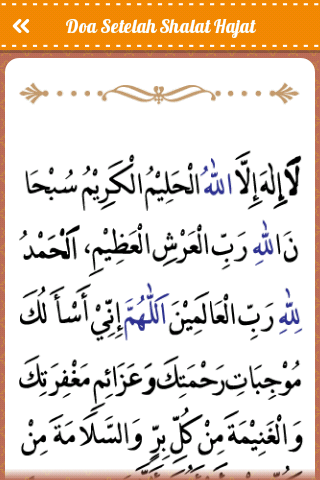 Doa Setelah Shalat Hajat
لَا إِلٰهَ إِلَّا اللهُ الْحَلِيْمُ الْكَرِيْمُ سُبْحَا
نَ اللهِ رَبِّ الْعَرْشِ الْعَظِيْمِ، اَلْحَمْدُ
لِلّٰهِ رَبِّ الْعَالَمِيْنَ اَللّٰهُمَّ إِنِّيْ أَسْأَ لُكَ
مُوْجِبَاتِ رَحْمَتِكَ وَعَزَائِمِ مَغْفِرَتِكَ
وَالْغَنِيْمَةَ مِنْ كُلِّ بِرٍّ وَالسَّلَامَةَ مِنْ